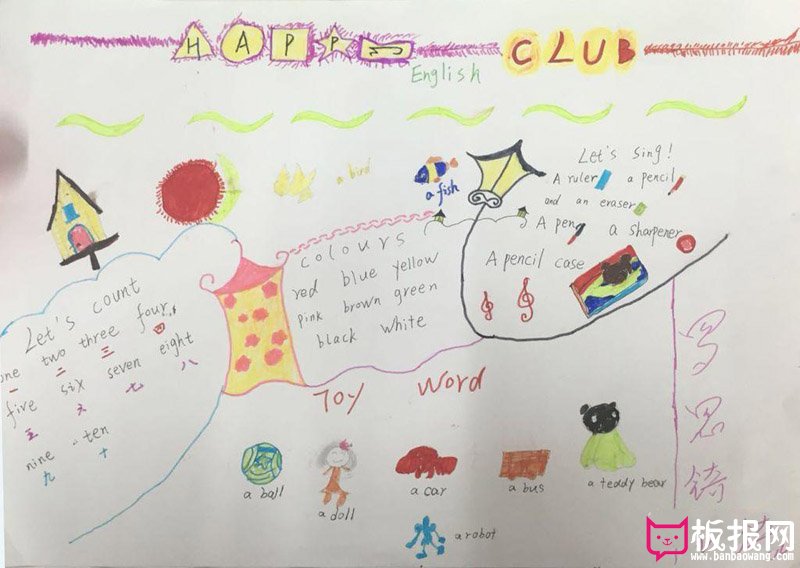 HAPPY CLUB
English
a bird
a fish
Let's sing!
A ruler a pencil
and an eraser
A pen a sharpener
A pencil case
colours
red blue yellow
pink brown green
black white
Let's count
one two three four
一 二 三 四
five six seven eight
五 六 七 八
nine - ten
九 十
Toy Word
a ball
a doll
a car
a bus
a teddy bear
a robot
板报网
www.banbaowang.com